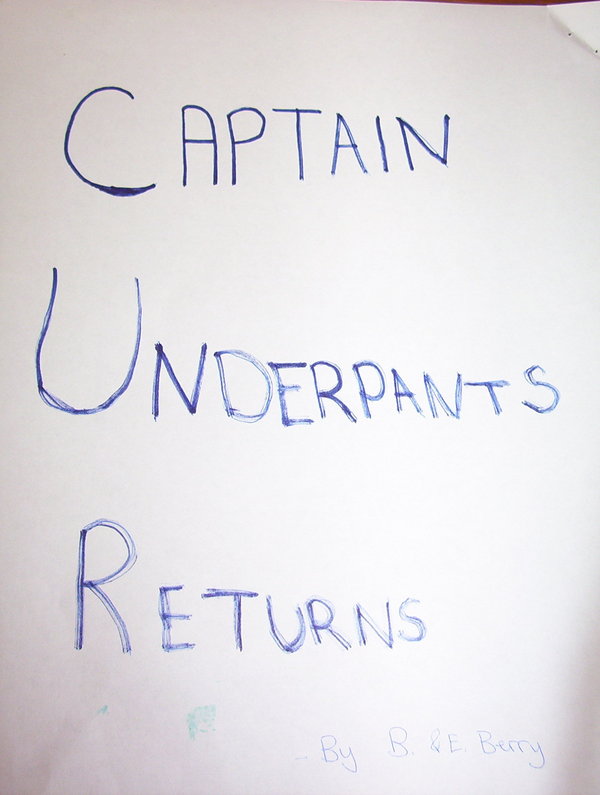 CAPTAIN
UNDERPANTS
RETURNS
- By B. & E. Berry